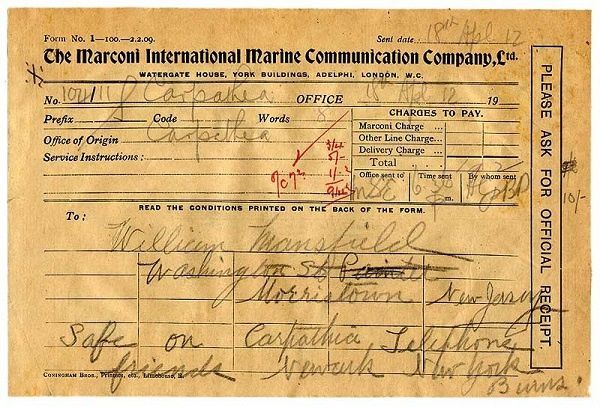 Form No. 1—100.—2.2.09.
Sent date 18th Apl 12
The Marconi International Marine Communication Company, Ltd.
WATERGATE HOUSE, YORK BUILDINGS, ADELPHI, LONDON, W.C.
No. Carpathea OFFICE 18 Apr 12 19
Prefix Code Words 8
CHARGES TO PAY.
Office of Origin Carpathea
Marconi Charge
Other Line Charge
Service Instructions:
Delivery Charge
Total
Office sent to Time sent By whom sent
MSE
m.
READ THE CONDITIONS PRINTED ON THE BACK OF THE FORM.
To:
William Mansfield
Washington St
Morristown New Jersey
Safe on Carpathia Telephone
friends Newark New York
Burns.
CONINGHAM BROS., Printers, etc., Limehouse, E.
PLEASE ASK FOR OFFICIAL RECEIPT.
10/-